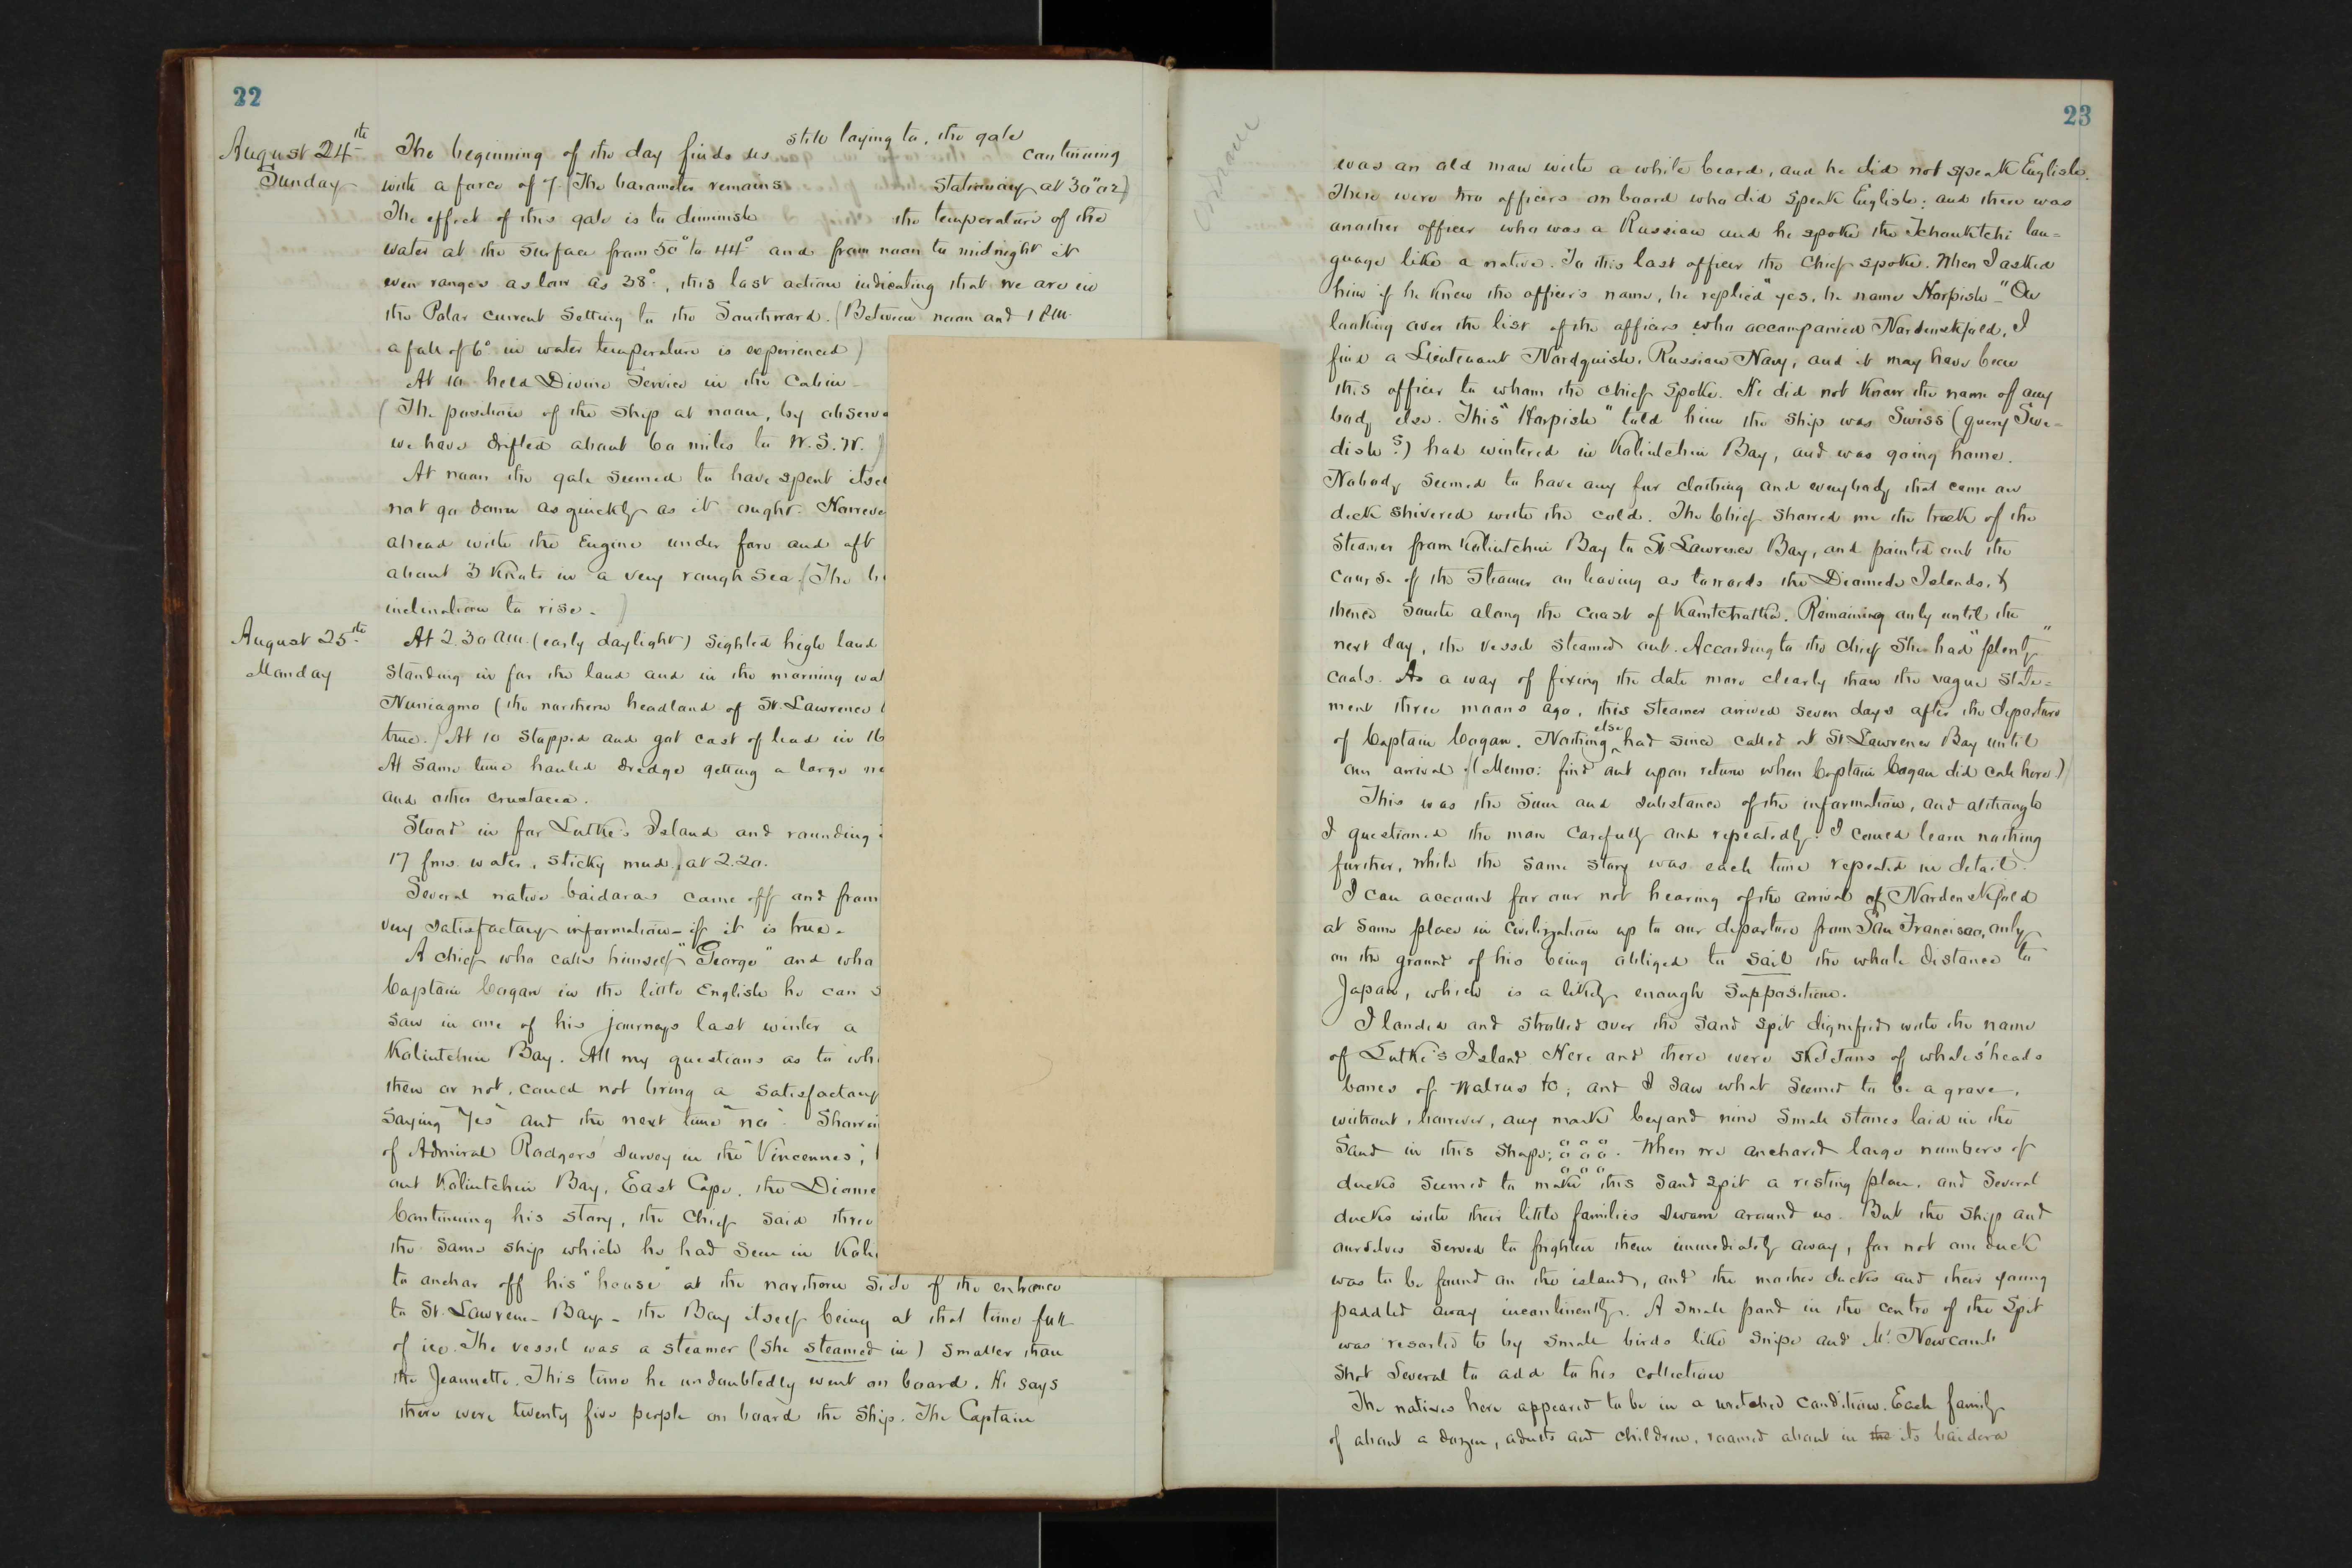 22
August 24th
Sunday
The beginning of the day finds us still laying to, the gale continuing
with a force of 7. (The barometer remains stationary at 30"02)
The effect of this gale is to diminish the temperature of the
water at the surface from 50° to 44° and from noon to midnight it
even ranges as low as 38°, this last action indicating that we are in
the Polar current setting to the Southward. (Between noon and 1 P.M.
a fall of 6° in water temperature is experienced)
At 10 held Divine Service in the Cabin -
(The position of the ship at noon, by
we have drifted about 60 miles to W.S.W.)
At noon the gale seemed to have spent
not go down as quickly as it ought.
ahead with the Engine under fore and aft
about 3 knots in a very rough sea. (The
inclination to rise - )
August 25th
Monday
At 2.30 A.M. (early daylight) sighted high land
standing in for the land and in the morning
Nuniagmo (the northern headland of St. Lawrence
true.) At 10 stopped and got cast of lead in 16
At same time hauled dredge getting a large
and other crustacea.
Stood in for Lutke's Island and rounding
17 fms. water, sticky mud, at 2.20.
Several native baidaras came off and from
very satisfactory information - if it is true.
A chief who calls himself "George" and who
Captain Cogan in the little English he can
saw in one of his journeys last winter a
Koliutchin Bay. All my questions as to
then or not, could not bring a satisfactory
saying "Yes" and the next time "no".
of Admiral Rodgers' survey in the "Vincennes",
out Koliutchin Bay, East Cape, the
Continuing his story, the Chief said three
the same ship which he had seen in
to anchor off his "house" at the northern side of the entrance
to St. Lawrence Bay - the Bay itself being at that time full
of ice. The vessel was a steamer (she steamed in) smaller than
the Jeannette. This time he undoubtedly went on board. He says
there were twenty five people on board the ship. The Captain
23
was an old man with a white beard, and he did not speak English.
There were two officers on board who did speak English; and there was
another officer who was a Russian and he spoke the Tchouktchi lan=
guage like a native. To this last officer the Chief spoke. When I asked
him if he knew the officer's name, he replied "yes, he name Horpish -" On
looking over the list of the officers who accompanied Nordenskjold, I
find a Lieutenant Nordquish, Russian Navy, and it may have been
this officer to whom the chief spoke. He did not know the name of any
body else. This "Horpish" told him the ship was Swiss (query Swe-
dish?) had wintered in Koliutchin Bay, and was going home.
Nobody seemed to have any fur clothing and everybody that came on
deck shivered with the cold. The Chief showed me the track of the
steamer from Koliutchin Bay to St Lawrence Bay, and pointed out the
course of the steamer on leaving as towards the Diomede Islands, &
thence south along the coast of Kamtchatka. Remaining only until the
next day, the vessel steamed out. According to the chief she had "plenty"
coals. As a way of fixing the date more clearly than the vague state=
ment three moons ago, this steamer arrived seven days after the departure
of Captain Cogan. Nothing else had since called at St Lawrence Bay until
our arrival. (Memo: find out upon return when Captain Cogan did call here)
This was the sum and substance of the information, and although
I questioned the man carefully and repeatedly. I could learn nothing
further, while the same story was each time repeated in detail.
I can account for our not hearing of the arrival of Nordenskjold
at some place in civilization up to our departure from San Francisco, only
on the ground of his being obliged to sail the whole distance to
Japan, which is a likely enough supposition.
I landed and strolled over the sand spit dignified with the name
of Lutke's Island. Here and there were skeletons of whales' heads
bones of walrus &c; and I saw what seemed to be a grave,
without, however, any mark beyond nine small stones laid in the
sand in this shape; o o o o o o o o o. When we anchored large numbers of
ducks seemed to make this sand spit a resting place, and several
ducks with their little families swam around us. But the ship and
ourselves served to frighten them immediately away, for not one duck
was to be found on the island, and the mother ducks and their young
paddled away incontinently. A small pond in the centre of the spit
was resorted to by small birds like snipe and Mr. Newcomb
shot several to add to his collection
The natives here appeared to be in a wretched condition. Each family
of about a dozen, adults and children, roamed about in the its baidara